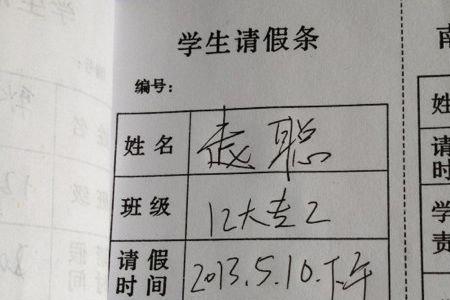 学生请假条
编号：
姓名 聪
班级 12大专2
请假时间 2013.5.10.下午
姓
请
时
学
责